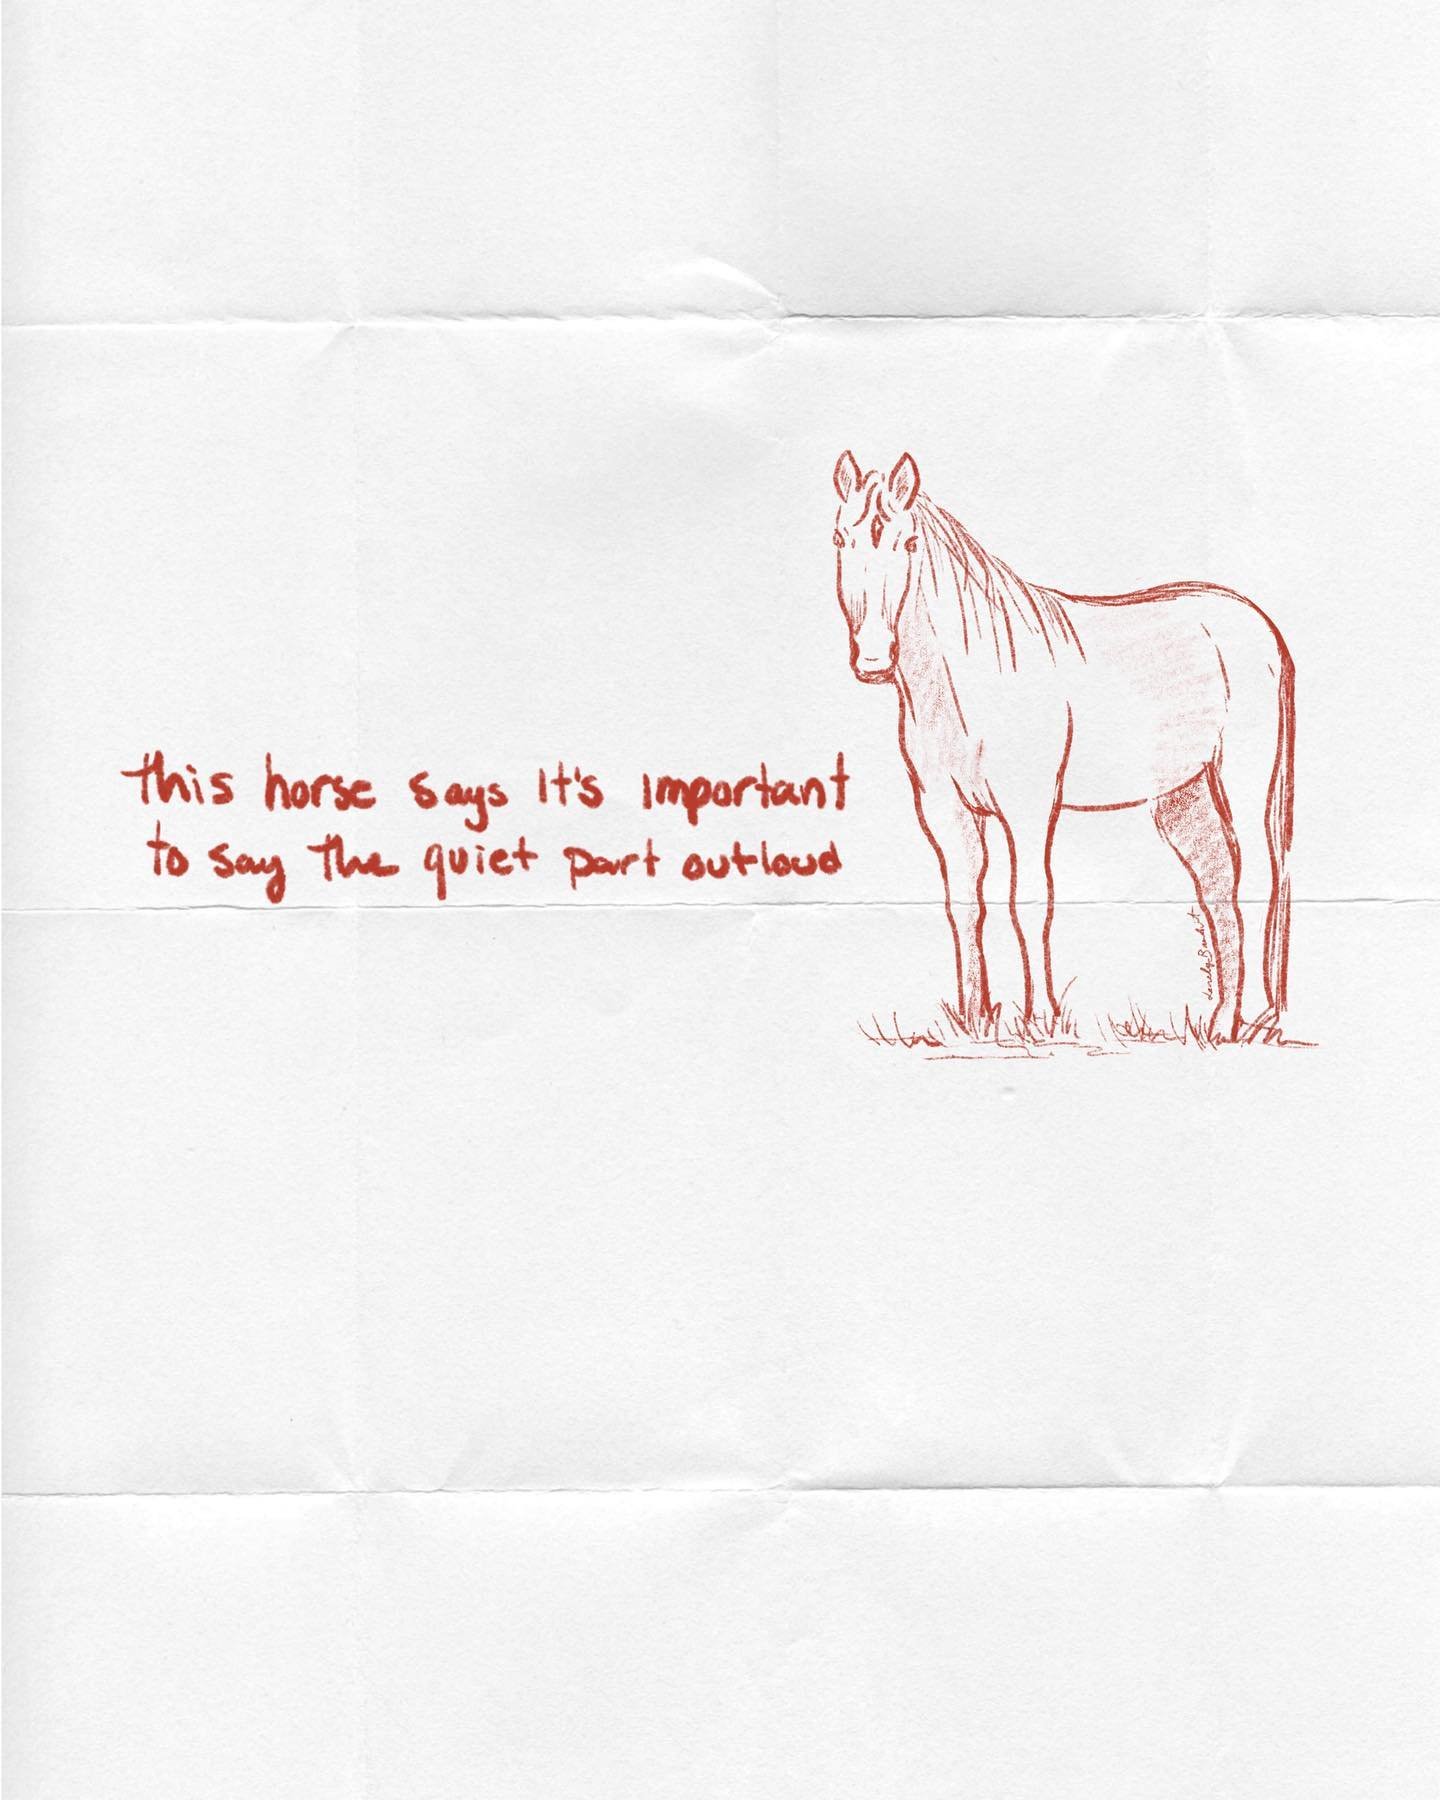 this horse says it's important
to say the quiet part outloud